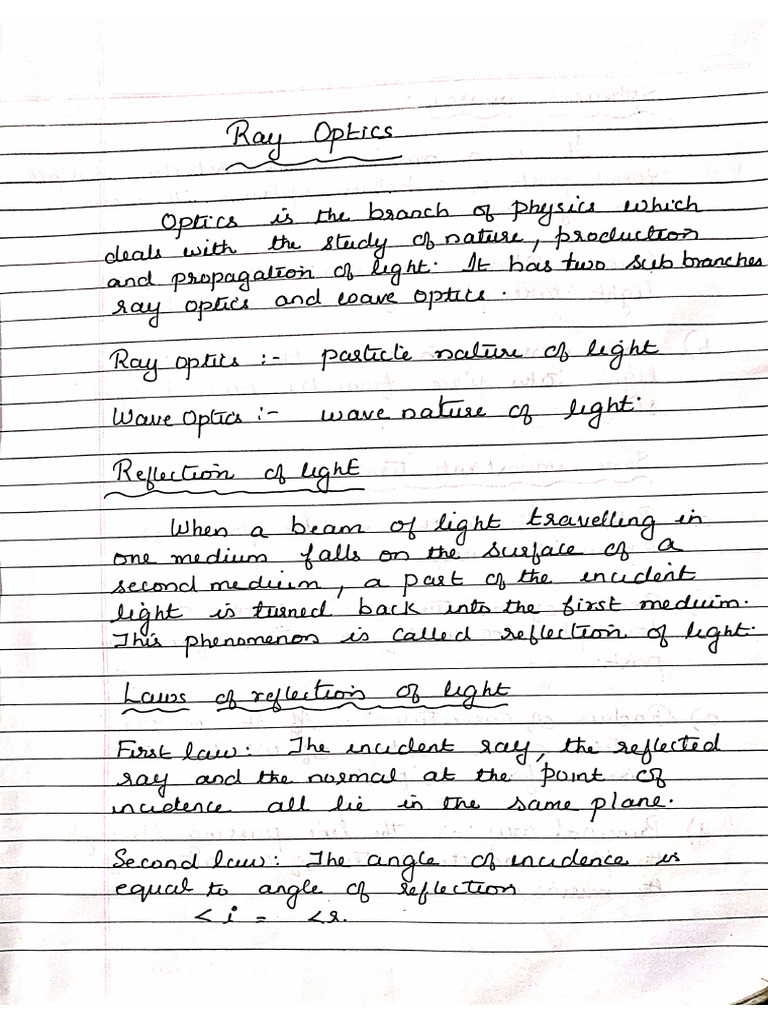 Ray Optics
Optics is the branch of physics which
deals with the study of nature, production
and propagation of light. It has two sub branches
ray optics and wave optics.
Ray optics :- particle nature of light
Wave Optics :- wave nature of light.
Reflection of light
When a beam of light travelling in
one medium falls on the surface of a
second medium, a part of the incident
light is turned back into the first medium.
This phenomenon is called reflection of light.
Laws of reflection of light
First law: The incident ray, the reflected
ray and the normal at the point of
incidence all lie in the same plane.
Second law: The angle of incidence is
equal to angle of reflection
<i = <r.